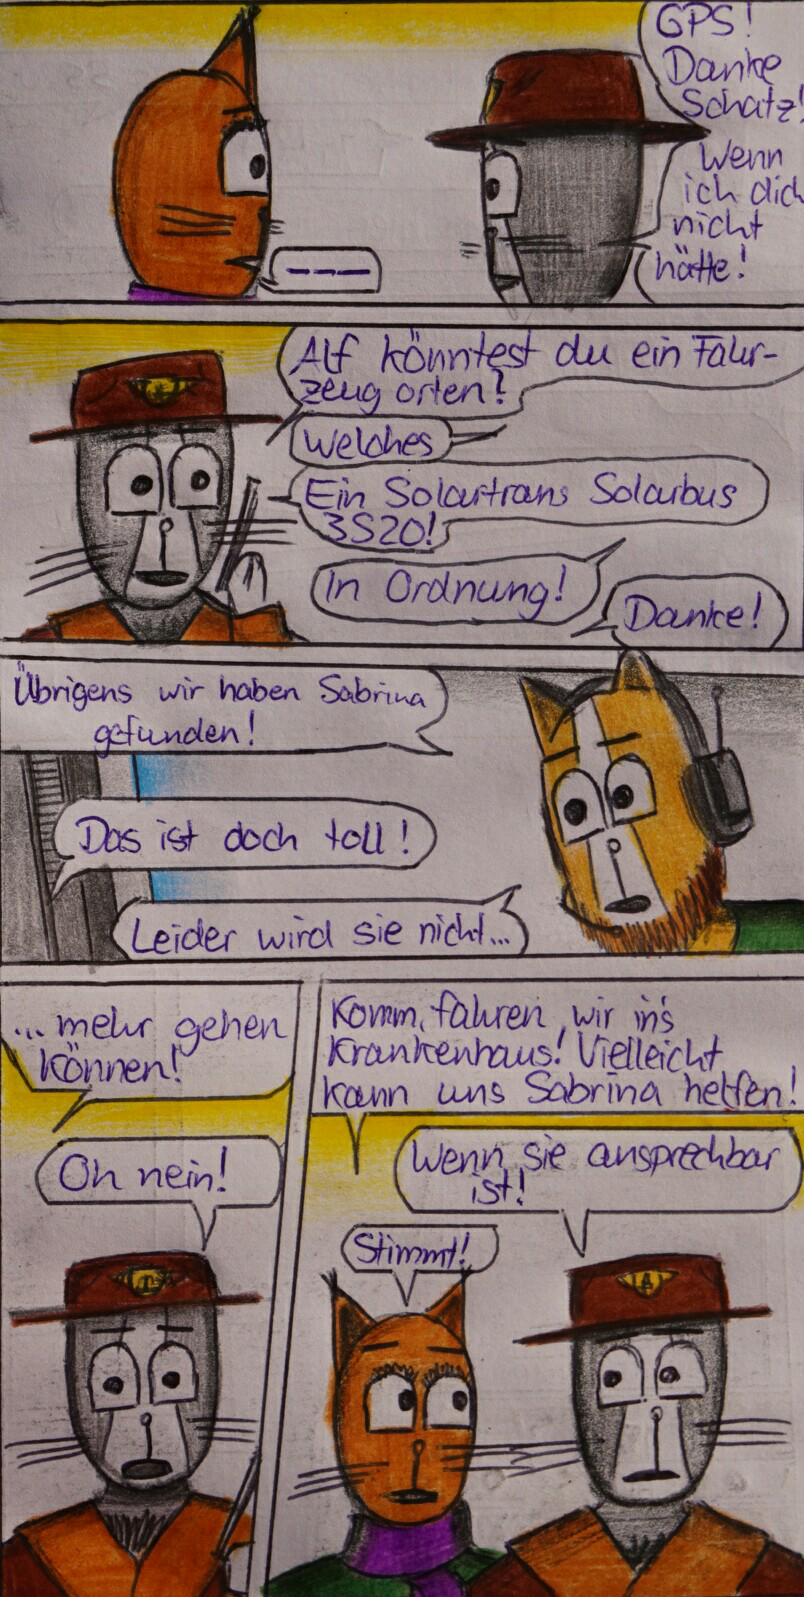 GPS!
Danke
Schatz!
Wenn
ich dich
nicht
hätte!
----
Alf könntest du ein Fahr-
zeug orten?
Welches
Ein Solartrans Solarbus
3S20!
In Ordnung!
Danke!
Übrigens wir haben Sabrina
gefunden!
Das ist doch toll!
Leider wird sie nicht...
... mehr gehen
können!
Oh nein!
Komm, fahren wir in's
Krankenhaus! Vielleicht
kann uns Sabrina helfen!
Wenn sie ansprechbar
ist!
Stimmt!